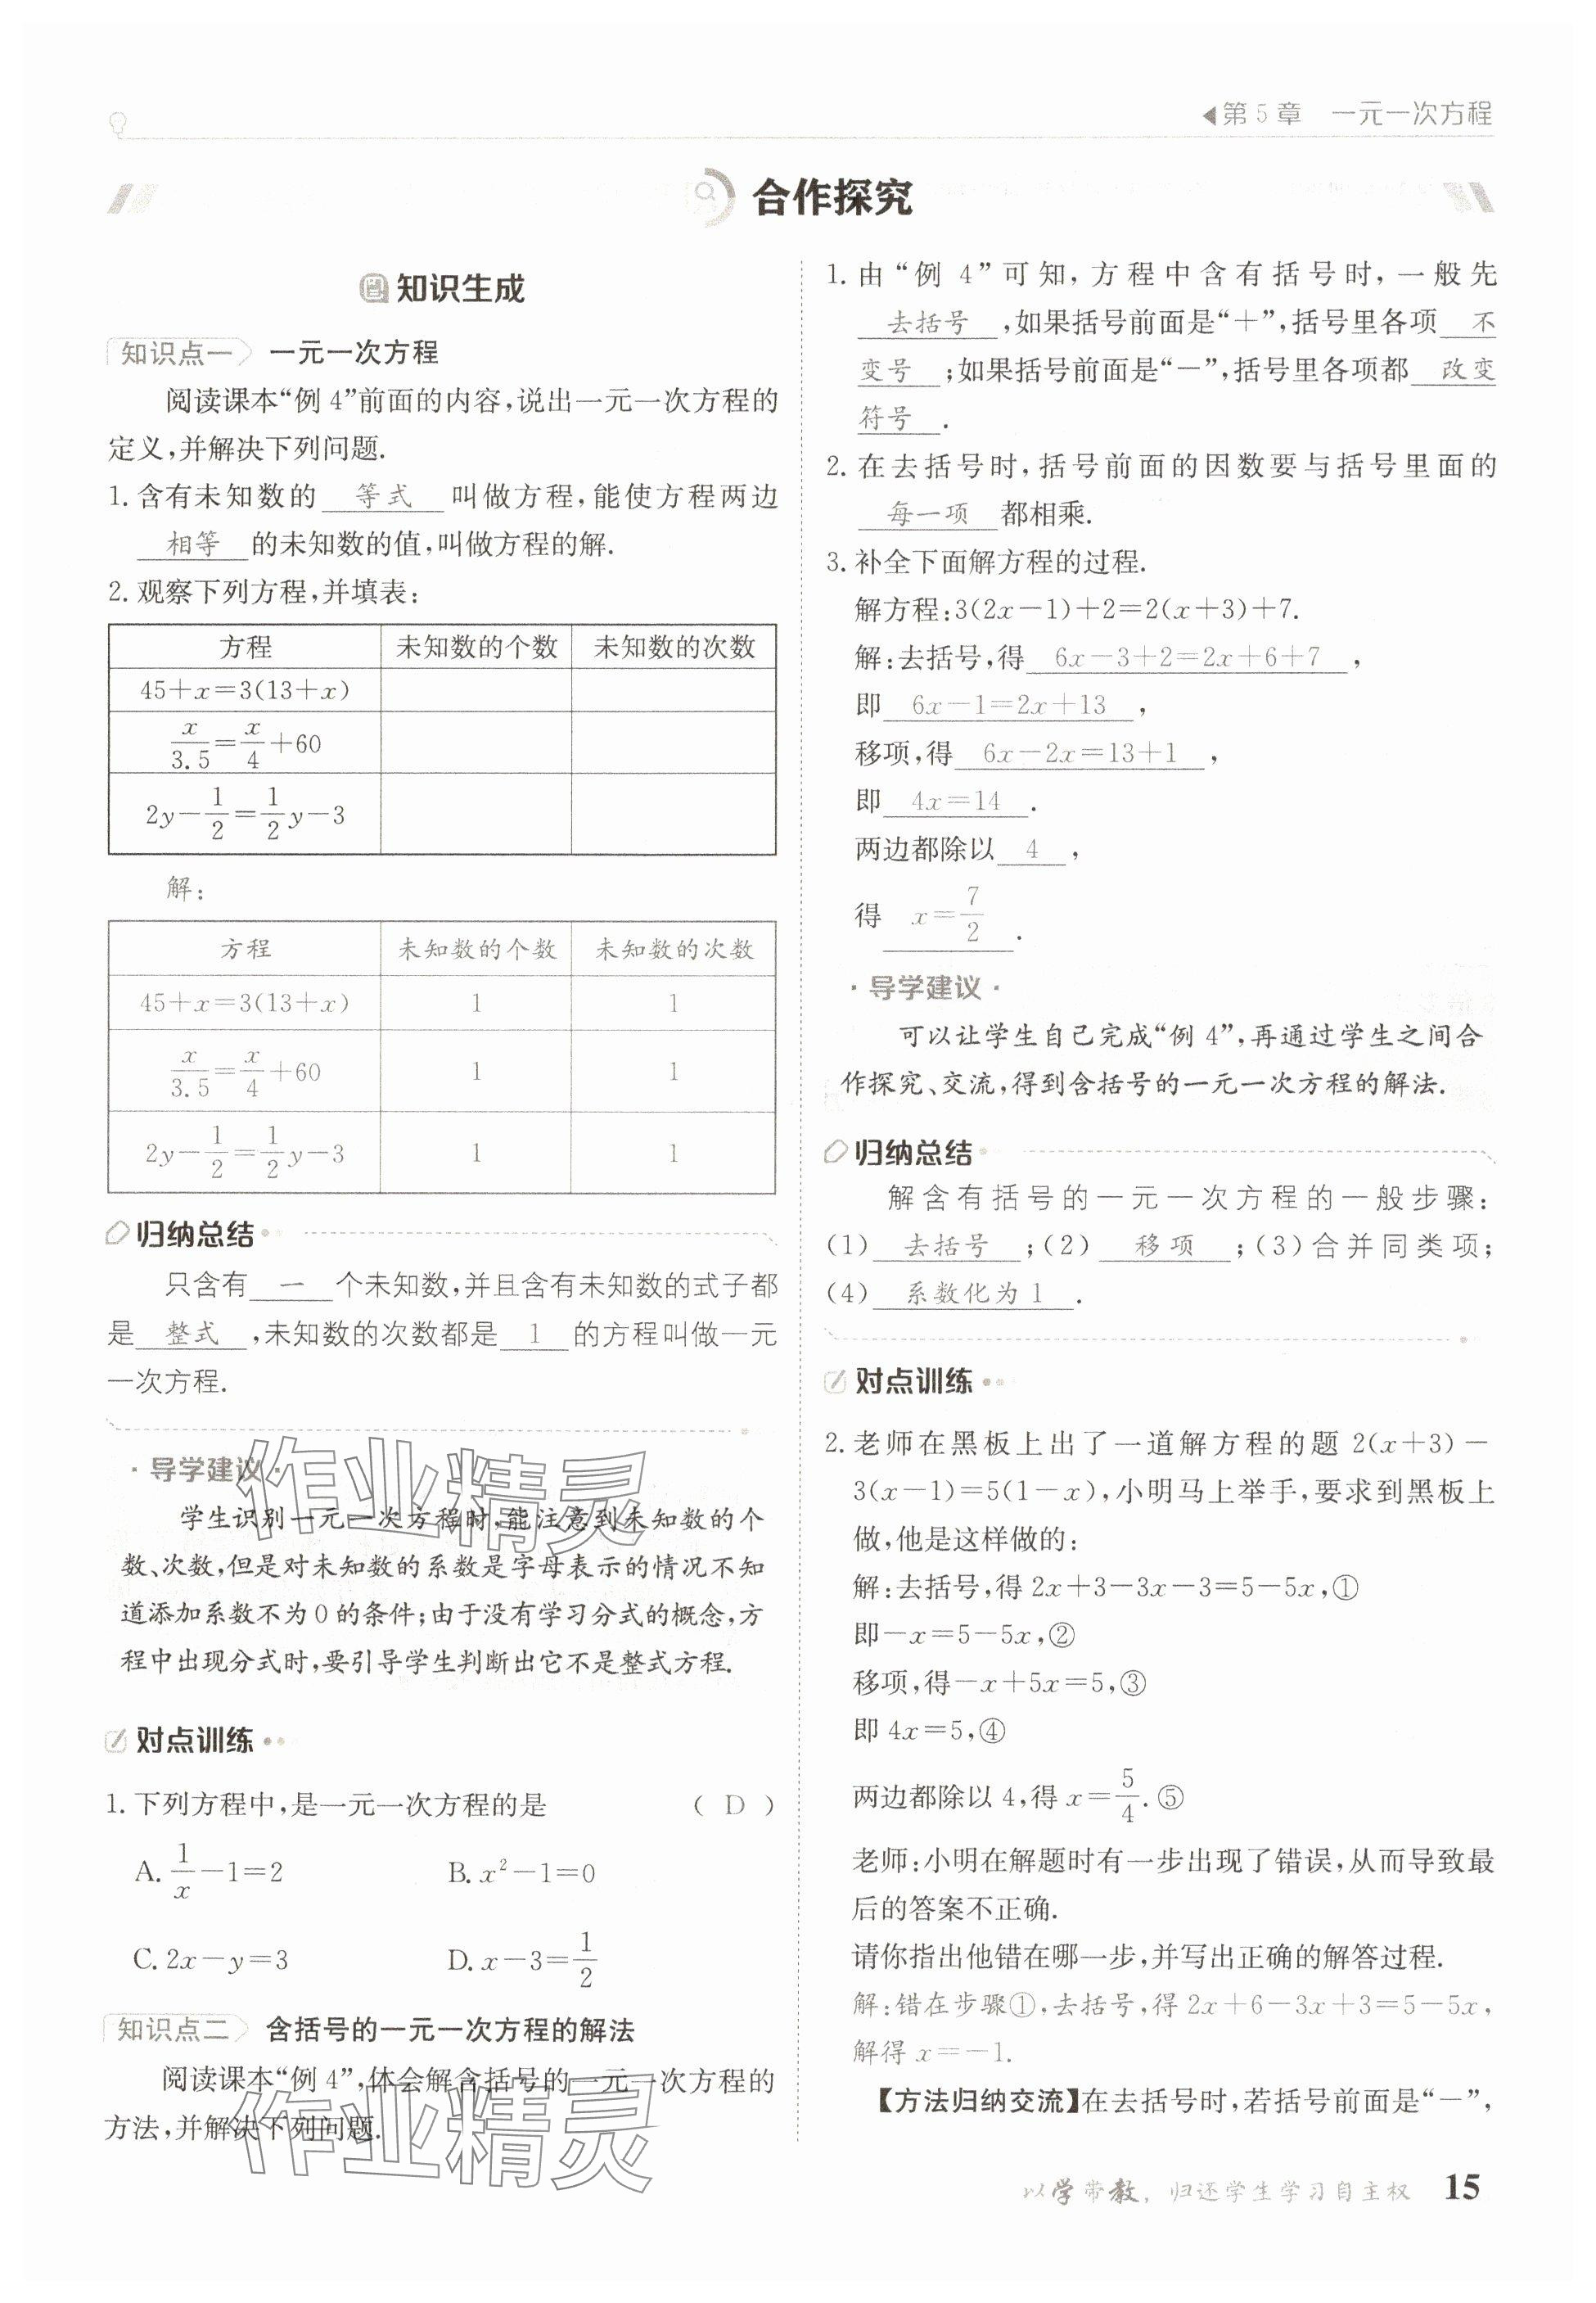 第 5 章　一元一次方程
合作探究
知识生成
知识点一　一元一次方程
阅读课本“例 4”前面的内容,说出一元一次方程的
定义,并解决下列问题.
1. 含有未知数的 等式 叫做方程,能使方程两边
相等 的未知数的值,叫做方程的解.
2. 观察下列方程,并填表:
方程　未知数的个数　未知数的次数
45+x=3(13+x)
x/3.5=x/4+60
2y-1/2=1/2y-3
解:
方程　未知数的个数　未知数的次数
45+x=3(13+x)　1　1
x/3.5=x/4+60　1　1
2y-1/2=1/2y-3　1　1
归纳总结
只含有 一 个未知数,并且含有未知数的式子都
是 整式 ,未知数的次数都是 1 的方程叫做一元
一次方程.
·导学建议·
学生识别一元一次方程时,能注意到未知数的个
数、次数,但是对未知数的系数是字母表示的情况不知
道添加系数不为 0 的条件;由于没有学习分式的概念,方
程中出现分式时,要引导学生判断出它不是整式方程.
对点训练
1. 下列方程中,是一元一次方程的是　( D )
A. 1/x-1=2　B. x²-1=0
C. 2x-y=3　D. x-3=1/2
知识点二　含括号的一元一次方程的解法
阅读课本“例 4”,体会解含括号的一元一次方程的
方法,并解决下列问题.
1. 由“例 4”可知,方程中含有括号时,一般先
去括号 ,如果括号前面是“+”,括号里各项 不
变号 ;如果括号前面是“-”,括号里各项都 改变
符号 .
2. 在去括号时,括号前面的因数要与括号里面的
每一项 都相乘.
3. 补全下面解方程的过程.
解方程:3(2x-1)+2=2(x+3)+7.
解:去括号,得 6x-3+2=2x+6+7 ,
即 6x-1=2x+13 ,
移项,得 6x-2x=13+1 ,
即 4x=14 .
两边都除以 4 ,
得 x=7/2 .
·导学建议·
可以让学生自己完成“例 4”,再通过学生之间合
作探究、交流,得到含括号的一元一次方程的解法.
归纳总结
解含有括号的一元一次方程的一般步骤:
(1) 去括号 ;(2) 移项 ;(3)合并同类项;
(4) 系数化为 1 .
对点训练
2. 老师在黑板上出了一道解方程的题 2(x+3)-
3(x-1)=5(1-x),小明马上举手,要求到黑板上
做,他是这样做的:
解:去括号,得 2x+3-3x-3=5-5x,①
即-x=5-5x,②
移项,得-x+5x=5,③
即 4x=5,④
两边都除以 4,得 x=5/4.⑤
老师:小明在解题时有一步出现了错误,从而导致最
后的答案不正确.
请你指出他错在哪一步,并写出正确的解答过程.
解:错在步骤①,去括号,得 2x+6-3x+3=5-5x,
解得 x=-1.
【方法归纳交流】在去括号时,若括号前面是“-”,
以学带教，归还学生学习自主权　15
作业精灵
作业精灵